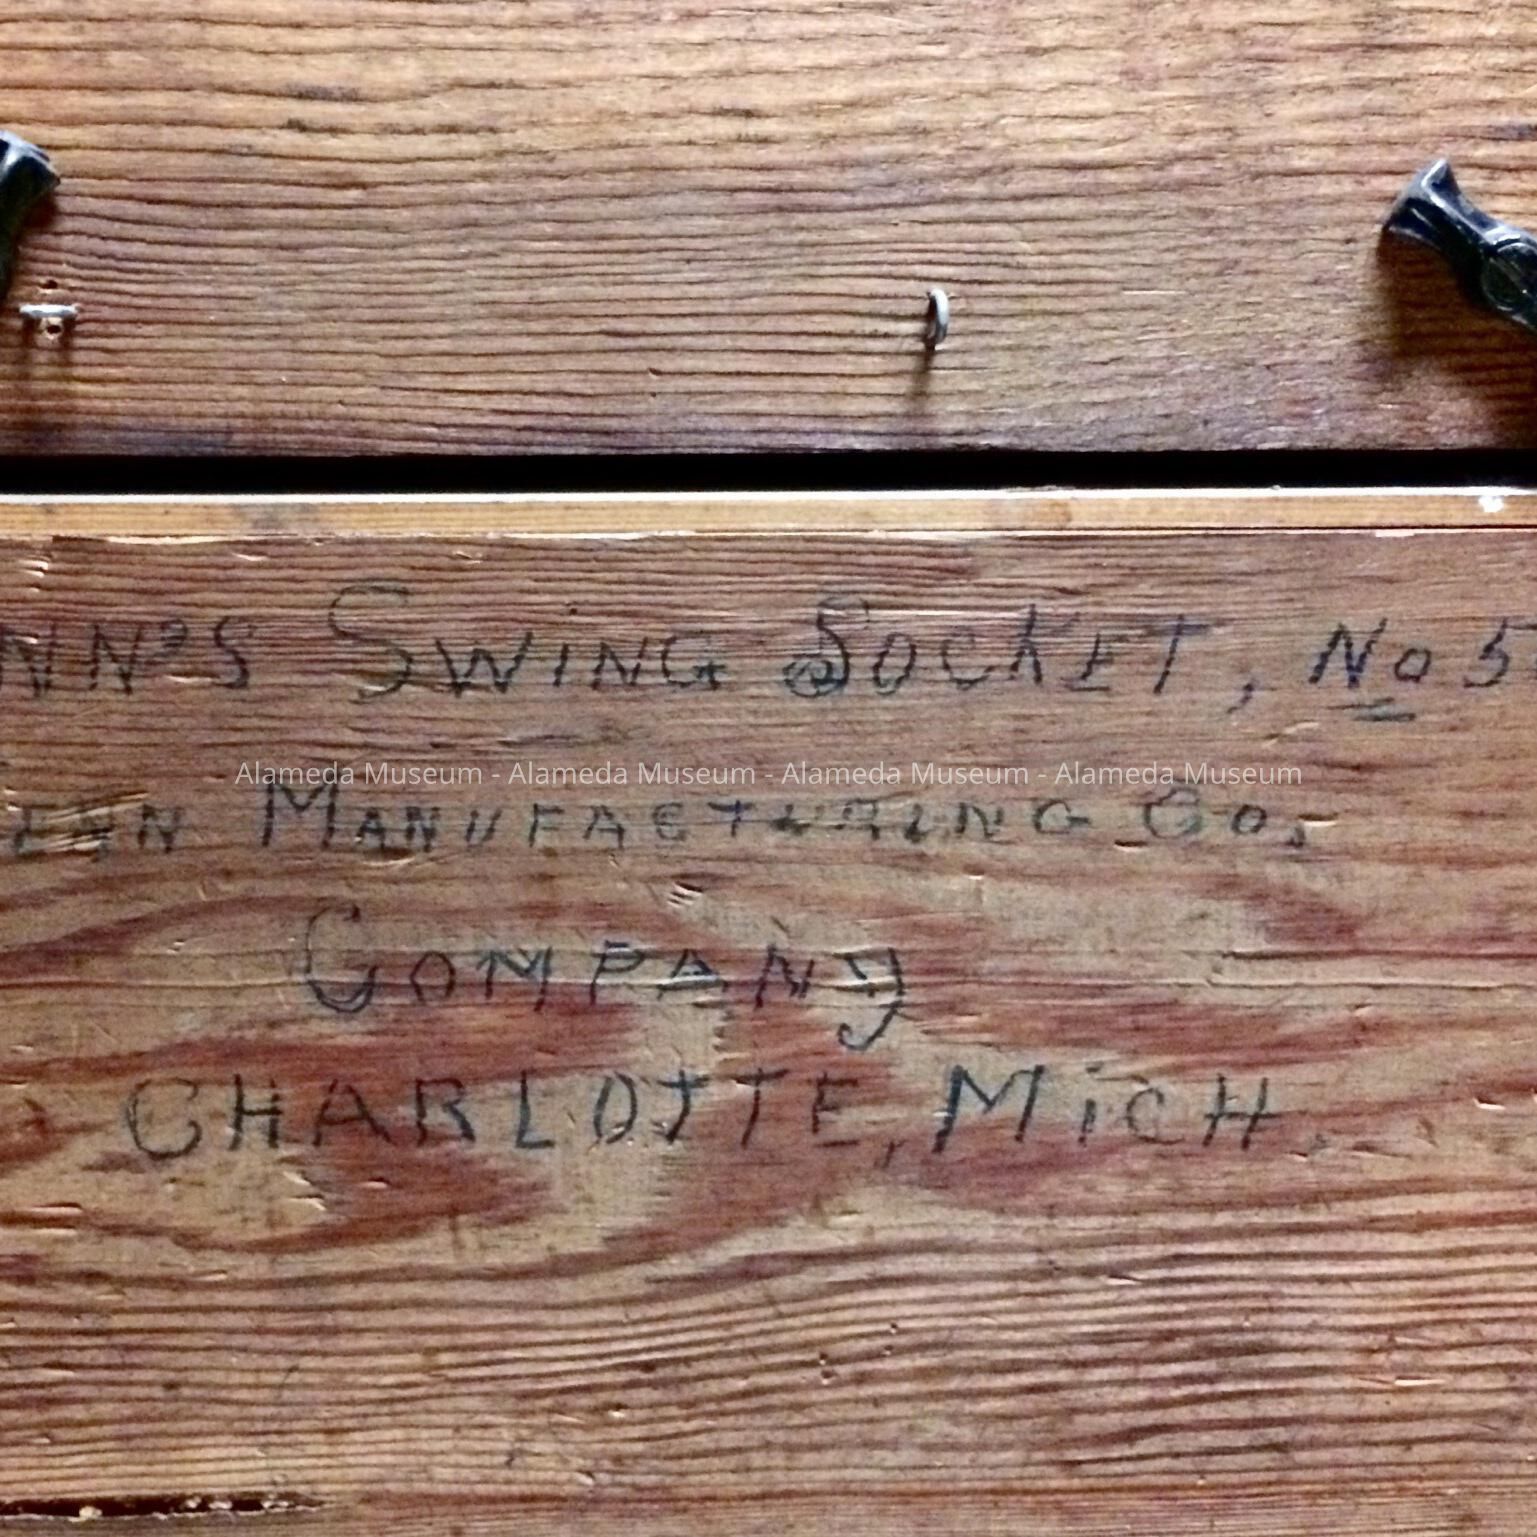 NN'S SWING SOCKET, No 5
Alameda Museum - Alameda Museum - Alameda Museum - Alameda Museum
MANUFACTURING CO.
COMPANY
CHARLOTTE, MICH.